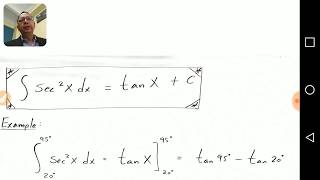 ∫ sec²x dx = tan x + C
Example:
∫₂₀°⁹⁵° sec²x dx = tan x ]₂₀°⁹⁵° = tan 95° − tan 20°